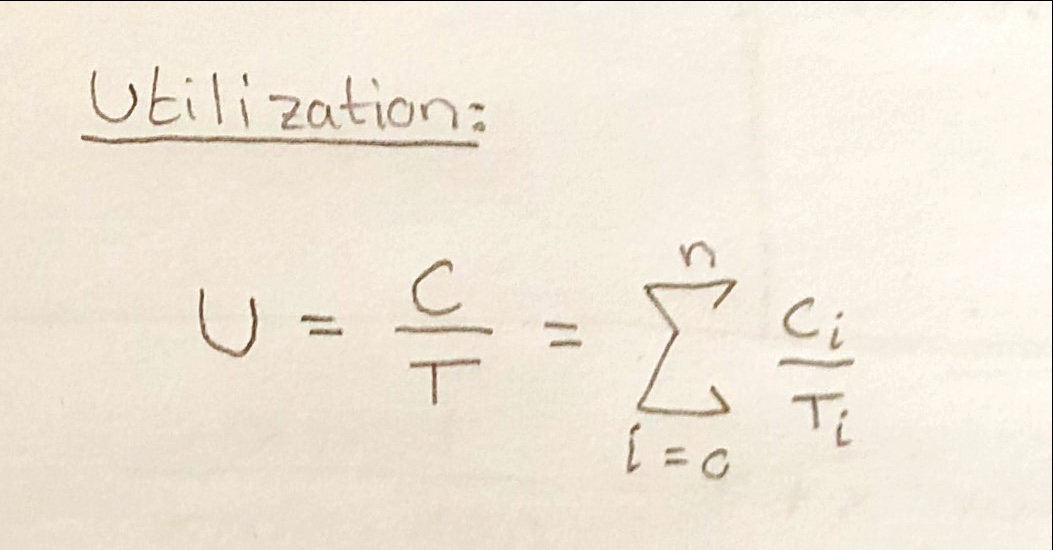 Utilization:
U = C/T = ∑_{i=0}^{n} C_i/T_i